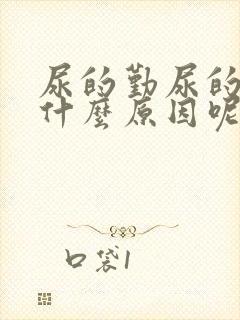 尿的勤尿的
什麼原因呢
口袋1